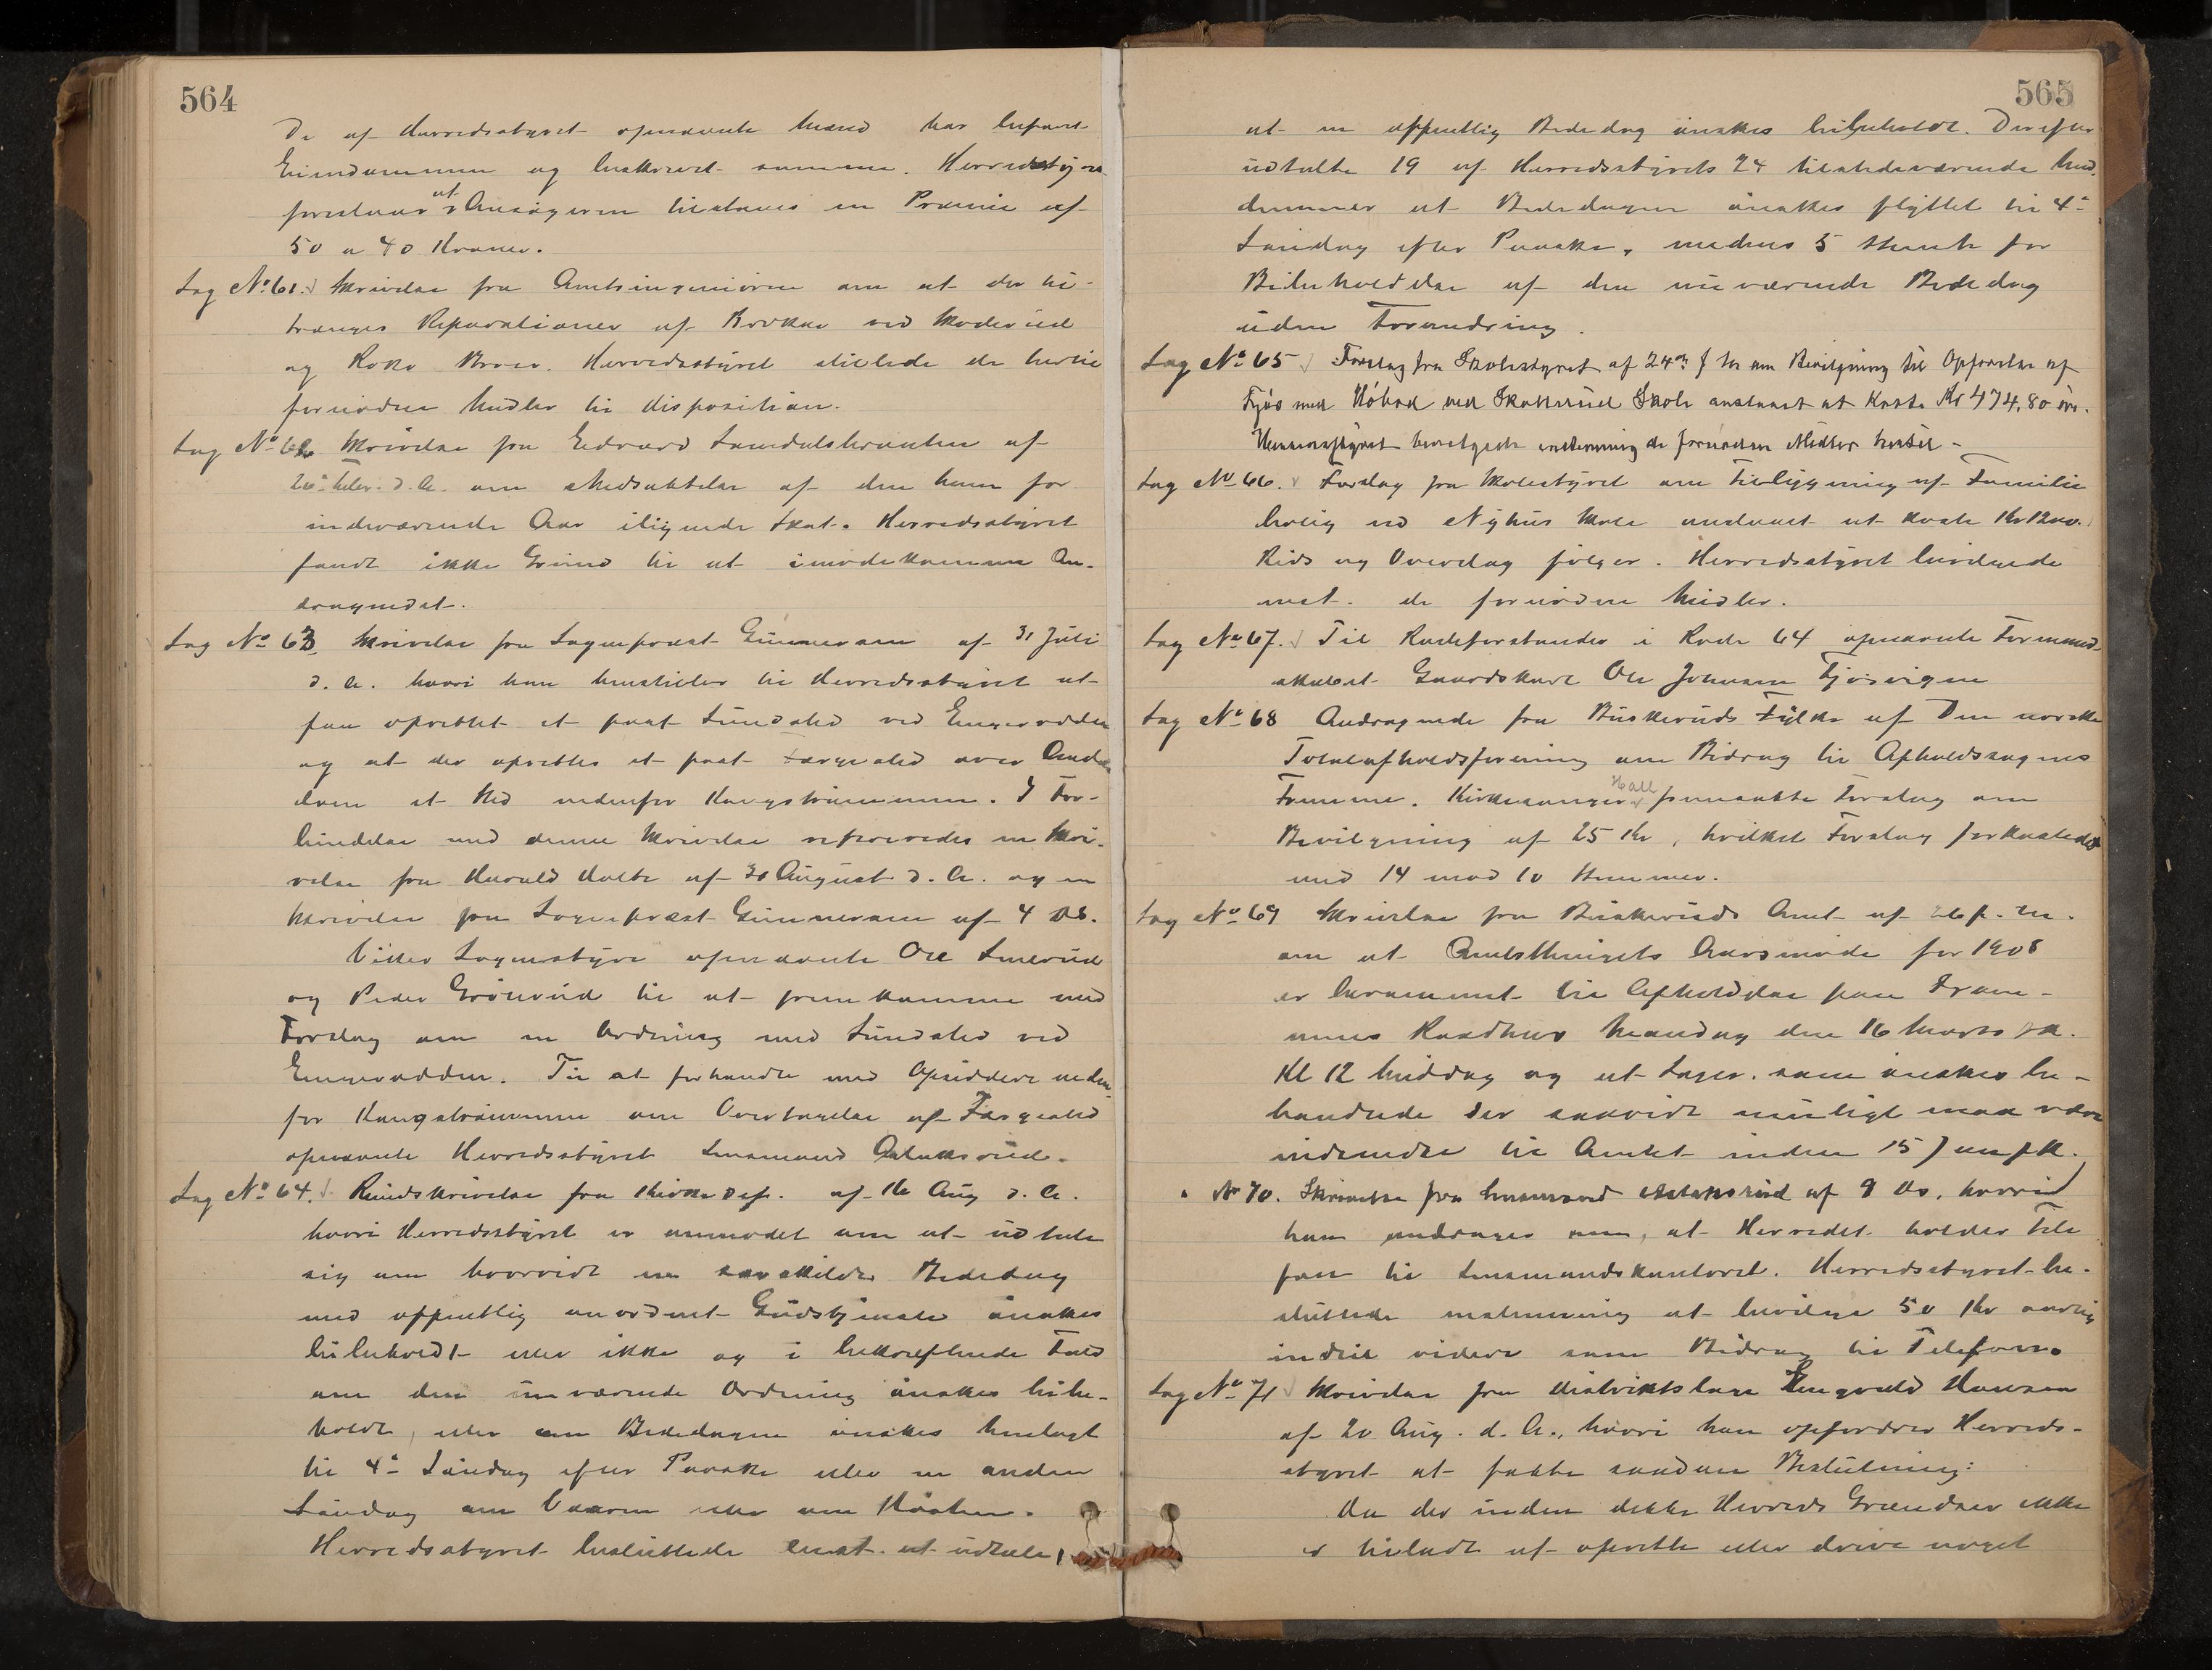 564
De af Herredsstyret opnævnte Mænd har befaret
Eiendommen og beskrevet samme. Herredsstyret
foreslaar at Ansøgeren tilstaaes en Præmie af
50 a 40 Kroner.
Sag No 61. Skrivelse fra Amtsingeniøren om at der til-
trænges Reparationer af Brokar ved Skoderud
og Roko Broer. Herredsstyret stillede de hertil
fornødne Midler til disposition.
Sag No 62 Skrivelse fra Edvard Sandalsbraaten af
20de Febr. d. A. om Nedsættelse af den ham for
indeværende Aar ilignede Skat. Herredsstyret
fandt ikke Grund til at imødekomme An-
dragendet.
Sag No 63 Skrivelse fra Sogneprest Gunnersen af 31 Juli
d. A. hvori han henstiller til Herredsstyret at
faa oprettet et fast Sundsted ved Engerodden
og at der oprettes et fast Færgested over
elven et Sted nedenfor Kongstrømmen. I For-
bindelse med denne Skrivelse refereredes en Skri-
velse fra Harald Holte af 30 August d. A. og en
Skrivelse fra Sogneprest Gunnersen af 4 ds.
Vikers Sognestyre opnævnte Ole Smerud
og Peder Grønvud til at fremkomme med
Forslag om en Ordning med Sundsted ved
Engerodden. Til at forhandle med Opsiddere neden-
for Kongstrømmen om Overtagelse af Færgested
opnævnte Herredsstyret Lensmand Aslaksrud.
Sag No 64. Rundskrivelse fra Kirke Dep. af 16 Aug d. A.
hvori Herredsstyret er anmodet om at udtale
sig om hvorvidt en særskildt Bededag
med offentlig anordnet Gudstjeneste ønskes
bibeholdt eller ikke og i bekræftende Fald
om den nuværende Ordning ønskes bibe-
holdt, eller om Bededagen ønskes henlagt
til 4de Søndag efter Paaske eller en anden
Søndag om Vaaren eller om Høsten.
Herredsstyret besluttede enst. at udtale,
565
at en offentlig Bededag ønskes bibeholdt. Derefter
udtalte 19 af Herredsstyrets 24 tilstedeværende Med-
lemmer at Bededagen ønskes flyttet til 4de
Søndag efter Paaske, medens 5 stemte for
Bibeholdelse af den nuværende Bededag
uden Forandring.
Sag No 65 Forslag fra Skolestyret af 24de f. M. om Bevilgning til Opførelse af
Fjøs med Høbod ved Skatterud Skole anslaaet at koste Kr 474,80 øre.
Herredsstyret bevilgede enstemmig de fornødne Midler hertil -
Sag No 66. Forslag fra Skolestyret om Tilbygning af Familie
bolig ved Nyhus Skole anslaaet at koste Kr 1200.
Rids og Overslag følger. Herredsstyret bevilgede
enst. de fornødne Midler.
Sag No 67. Til Rodeforstander i Rode 64 opnævnte Formand-
skabet Gaardskarl Ole Johnsen Fjøsvigen
Sag No 68 Andragende fra Buskeruds Fylke af Den norske
Totalafholdsforening om Bidrag til Afholdssagens
Fremme. Kirkesanger Hall fremsatte Forslag om
Bevilgning af 25 Kr, hvilket Forslag forkastedes
med 14 mod 10 Stemmer.
Sag No 69 Skrivelse fra Buskeruds Amt af 26 f. m.
om at Amtsthingets Aarsmøde for 1908
er berammet til Afholdelse paa Dram-
mens Raadhus Mandag den 16 Marts f.k.
Kl 12 Middag og at Sager, som ønskes be-
handlede der saavidt muligt maa være
indsendte til Amtet inden 15 Jan f.k.
" No 70. Skrivelse fra Lensmand Aslaksrud af 9 ds. hvorved
han andrager om, at Herredet holder Tele
fon til Lensmandskontoret. Herredsstyret be-
sluttede enstemmig at bevilge 50 Kr aarlig
indtil videre som Bidrag til Telefon.
Sag No 71 Skrivelse fra distriktslæge Engvald Hansen
af 20 Aug. d. A., hvori han opfordrer Herreds-
styret at fatte saadan Beslutning:
Da der inden dette Herreds Grændser ikke
er tilladt at oprette eller drive noget